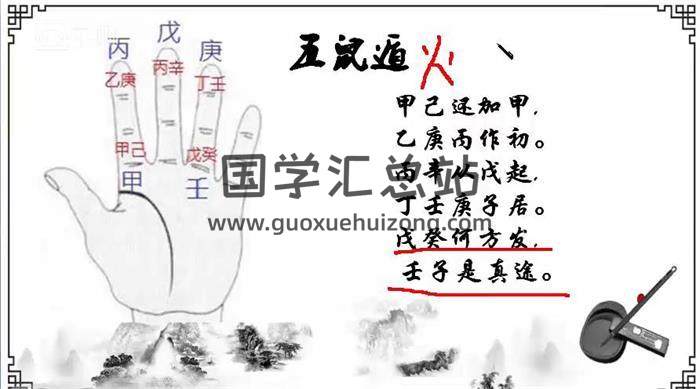 五鼠遁 火
甲己还加甲，
乙庚丙作初。
丙辛从戊起，
丁壬庚子居。
戊癸何方发，
壬子是真途。
丙
戊
庚
乙庚
丙辛
丁壬
甲己
戊癸
甲
壬
国学汇总站
www.guoxuehuizong.com